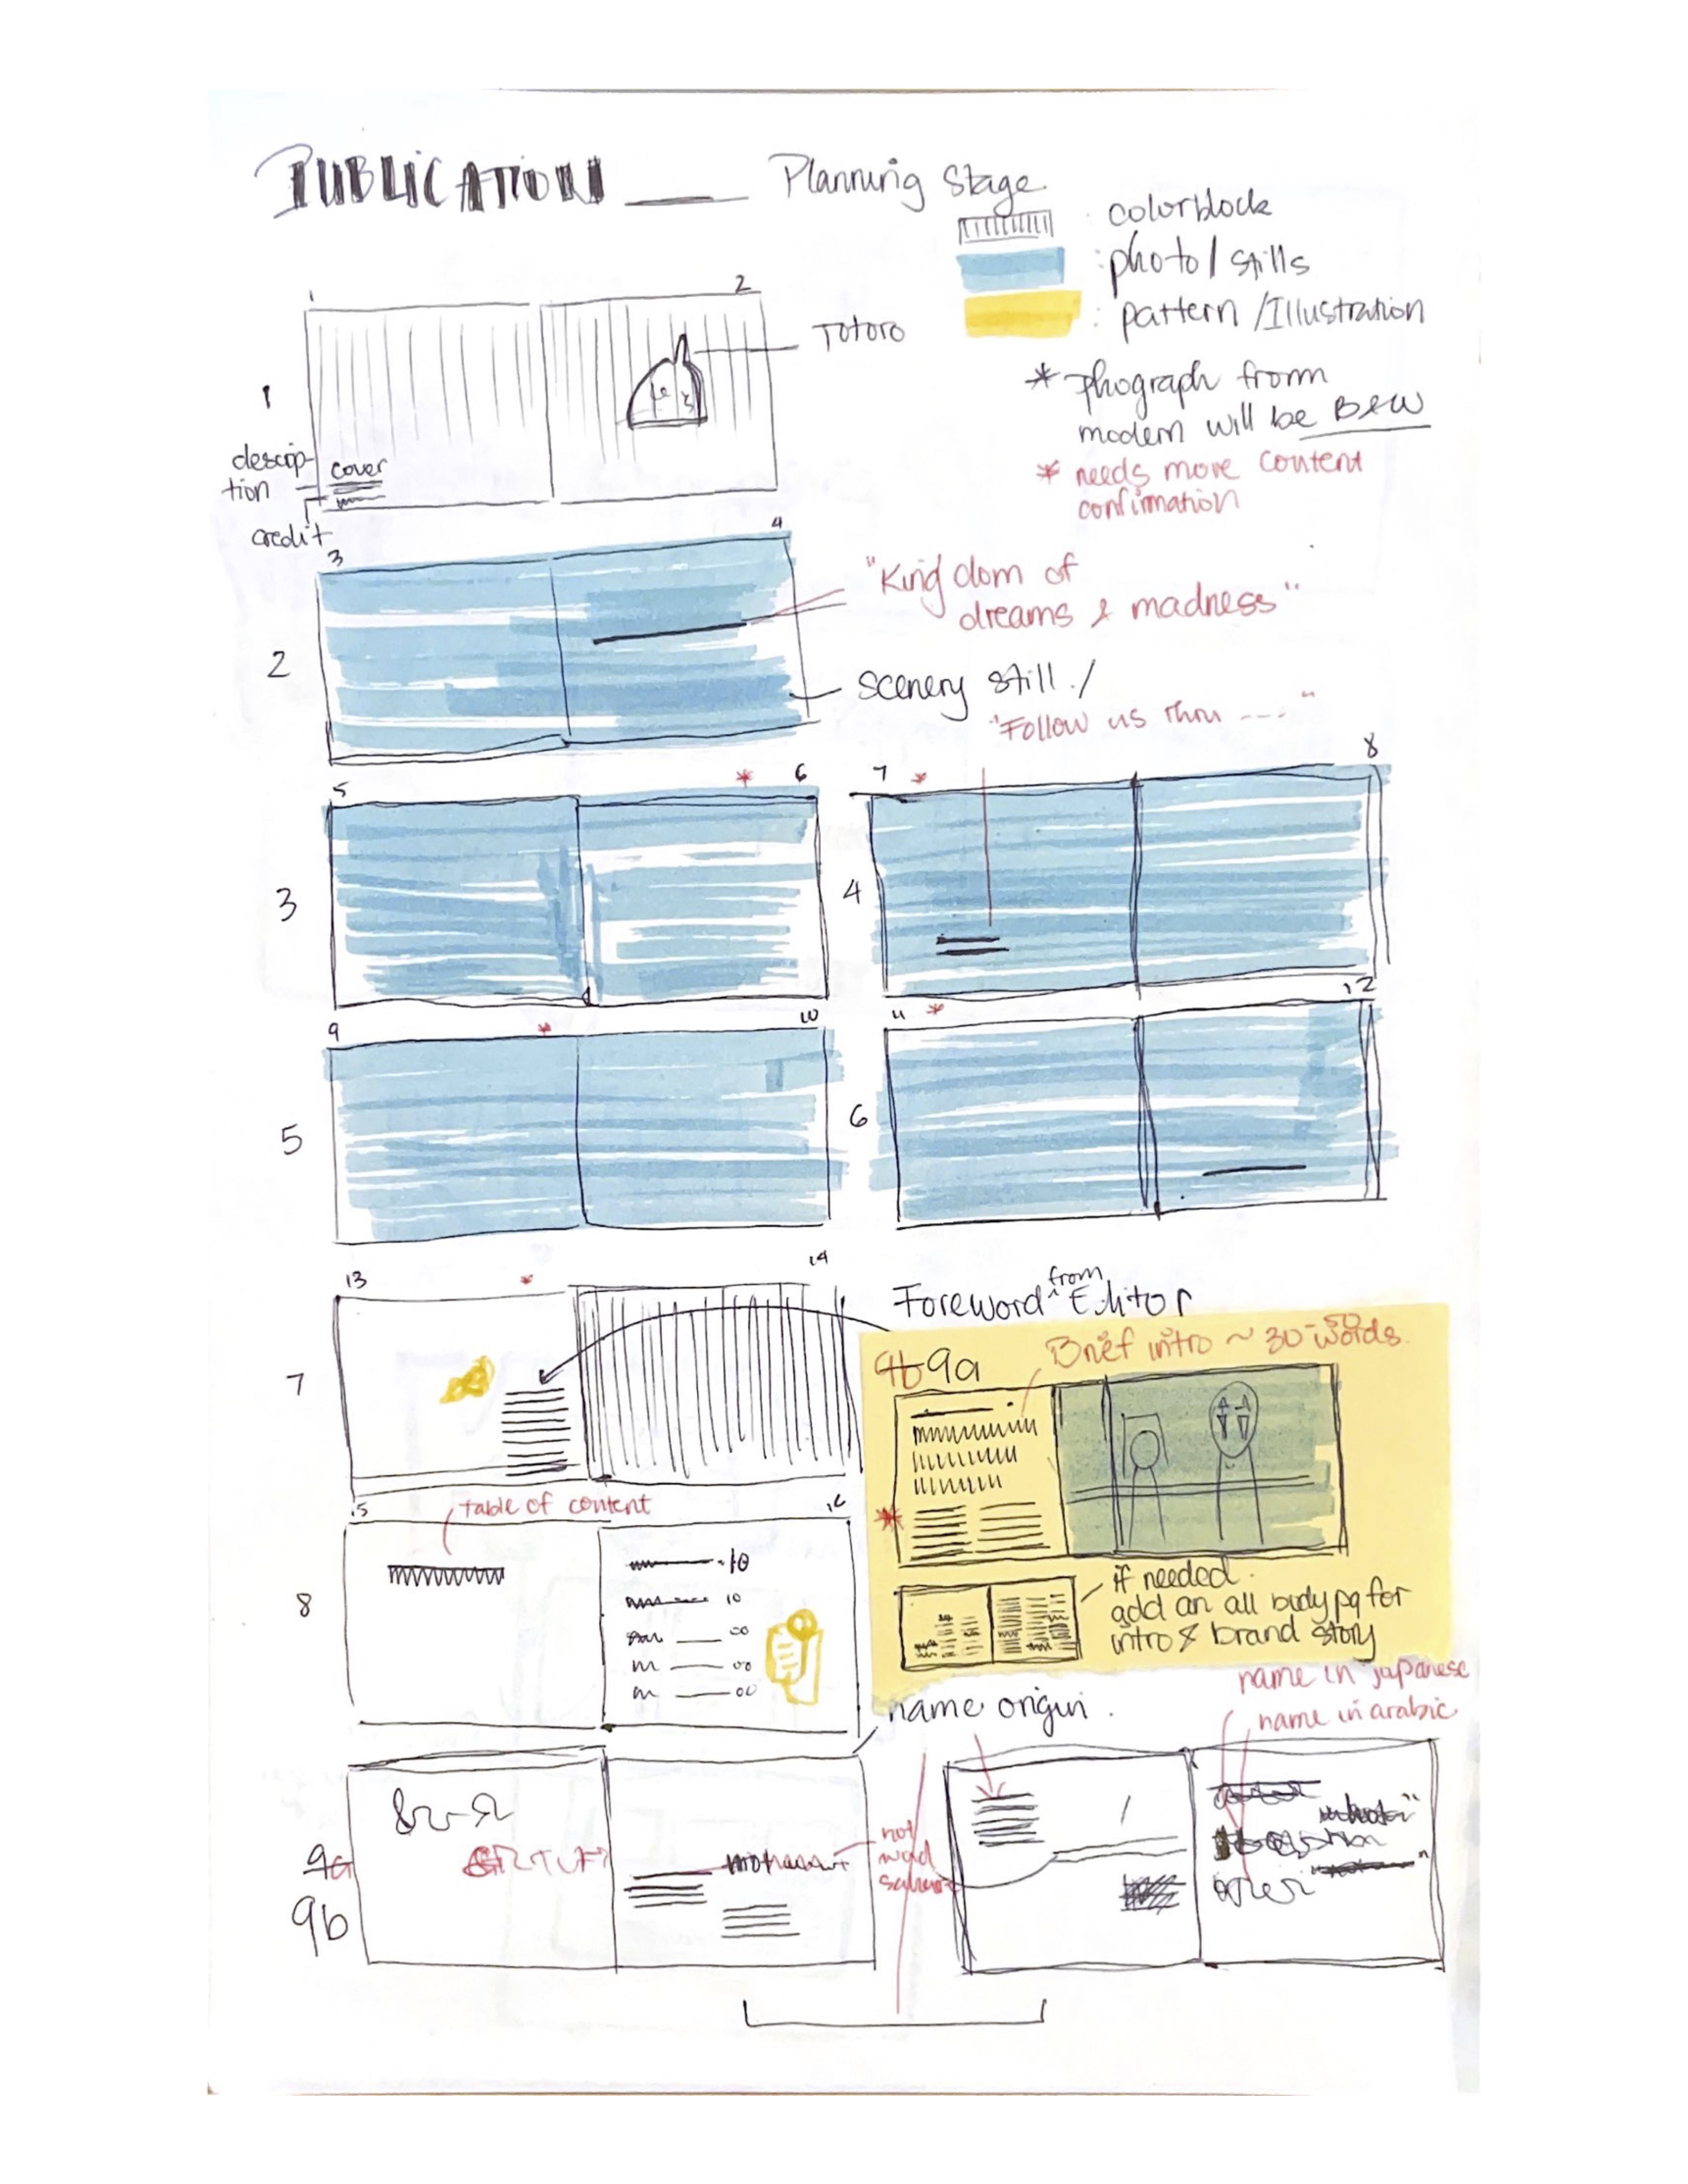 PUBLICATION
Planning Stage.
: colorblock
: photo / stills
: pattern / Illustration
* Phograph from
modern will be B&W
* needs more content
confirmation
1
2
Totoro
1
descrip-
tion
cover
credit
3
4
"Kingdom of
dreams & madness"
2
scenery still. /
"Follow us thru ---- "
5
* 6
7 *
8
3
4
9
*
10
11 *
12
5
6
13
*
14
Foreword from Editor
7
9b 9a
Brief intro ~ 30-50 words.
*
if needed.
add an all body pg for
intro & brand story
15
table of content
16
10
10
00
00
00
8
name in japanese
name in arabic
name origin.
not
9a
9b